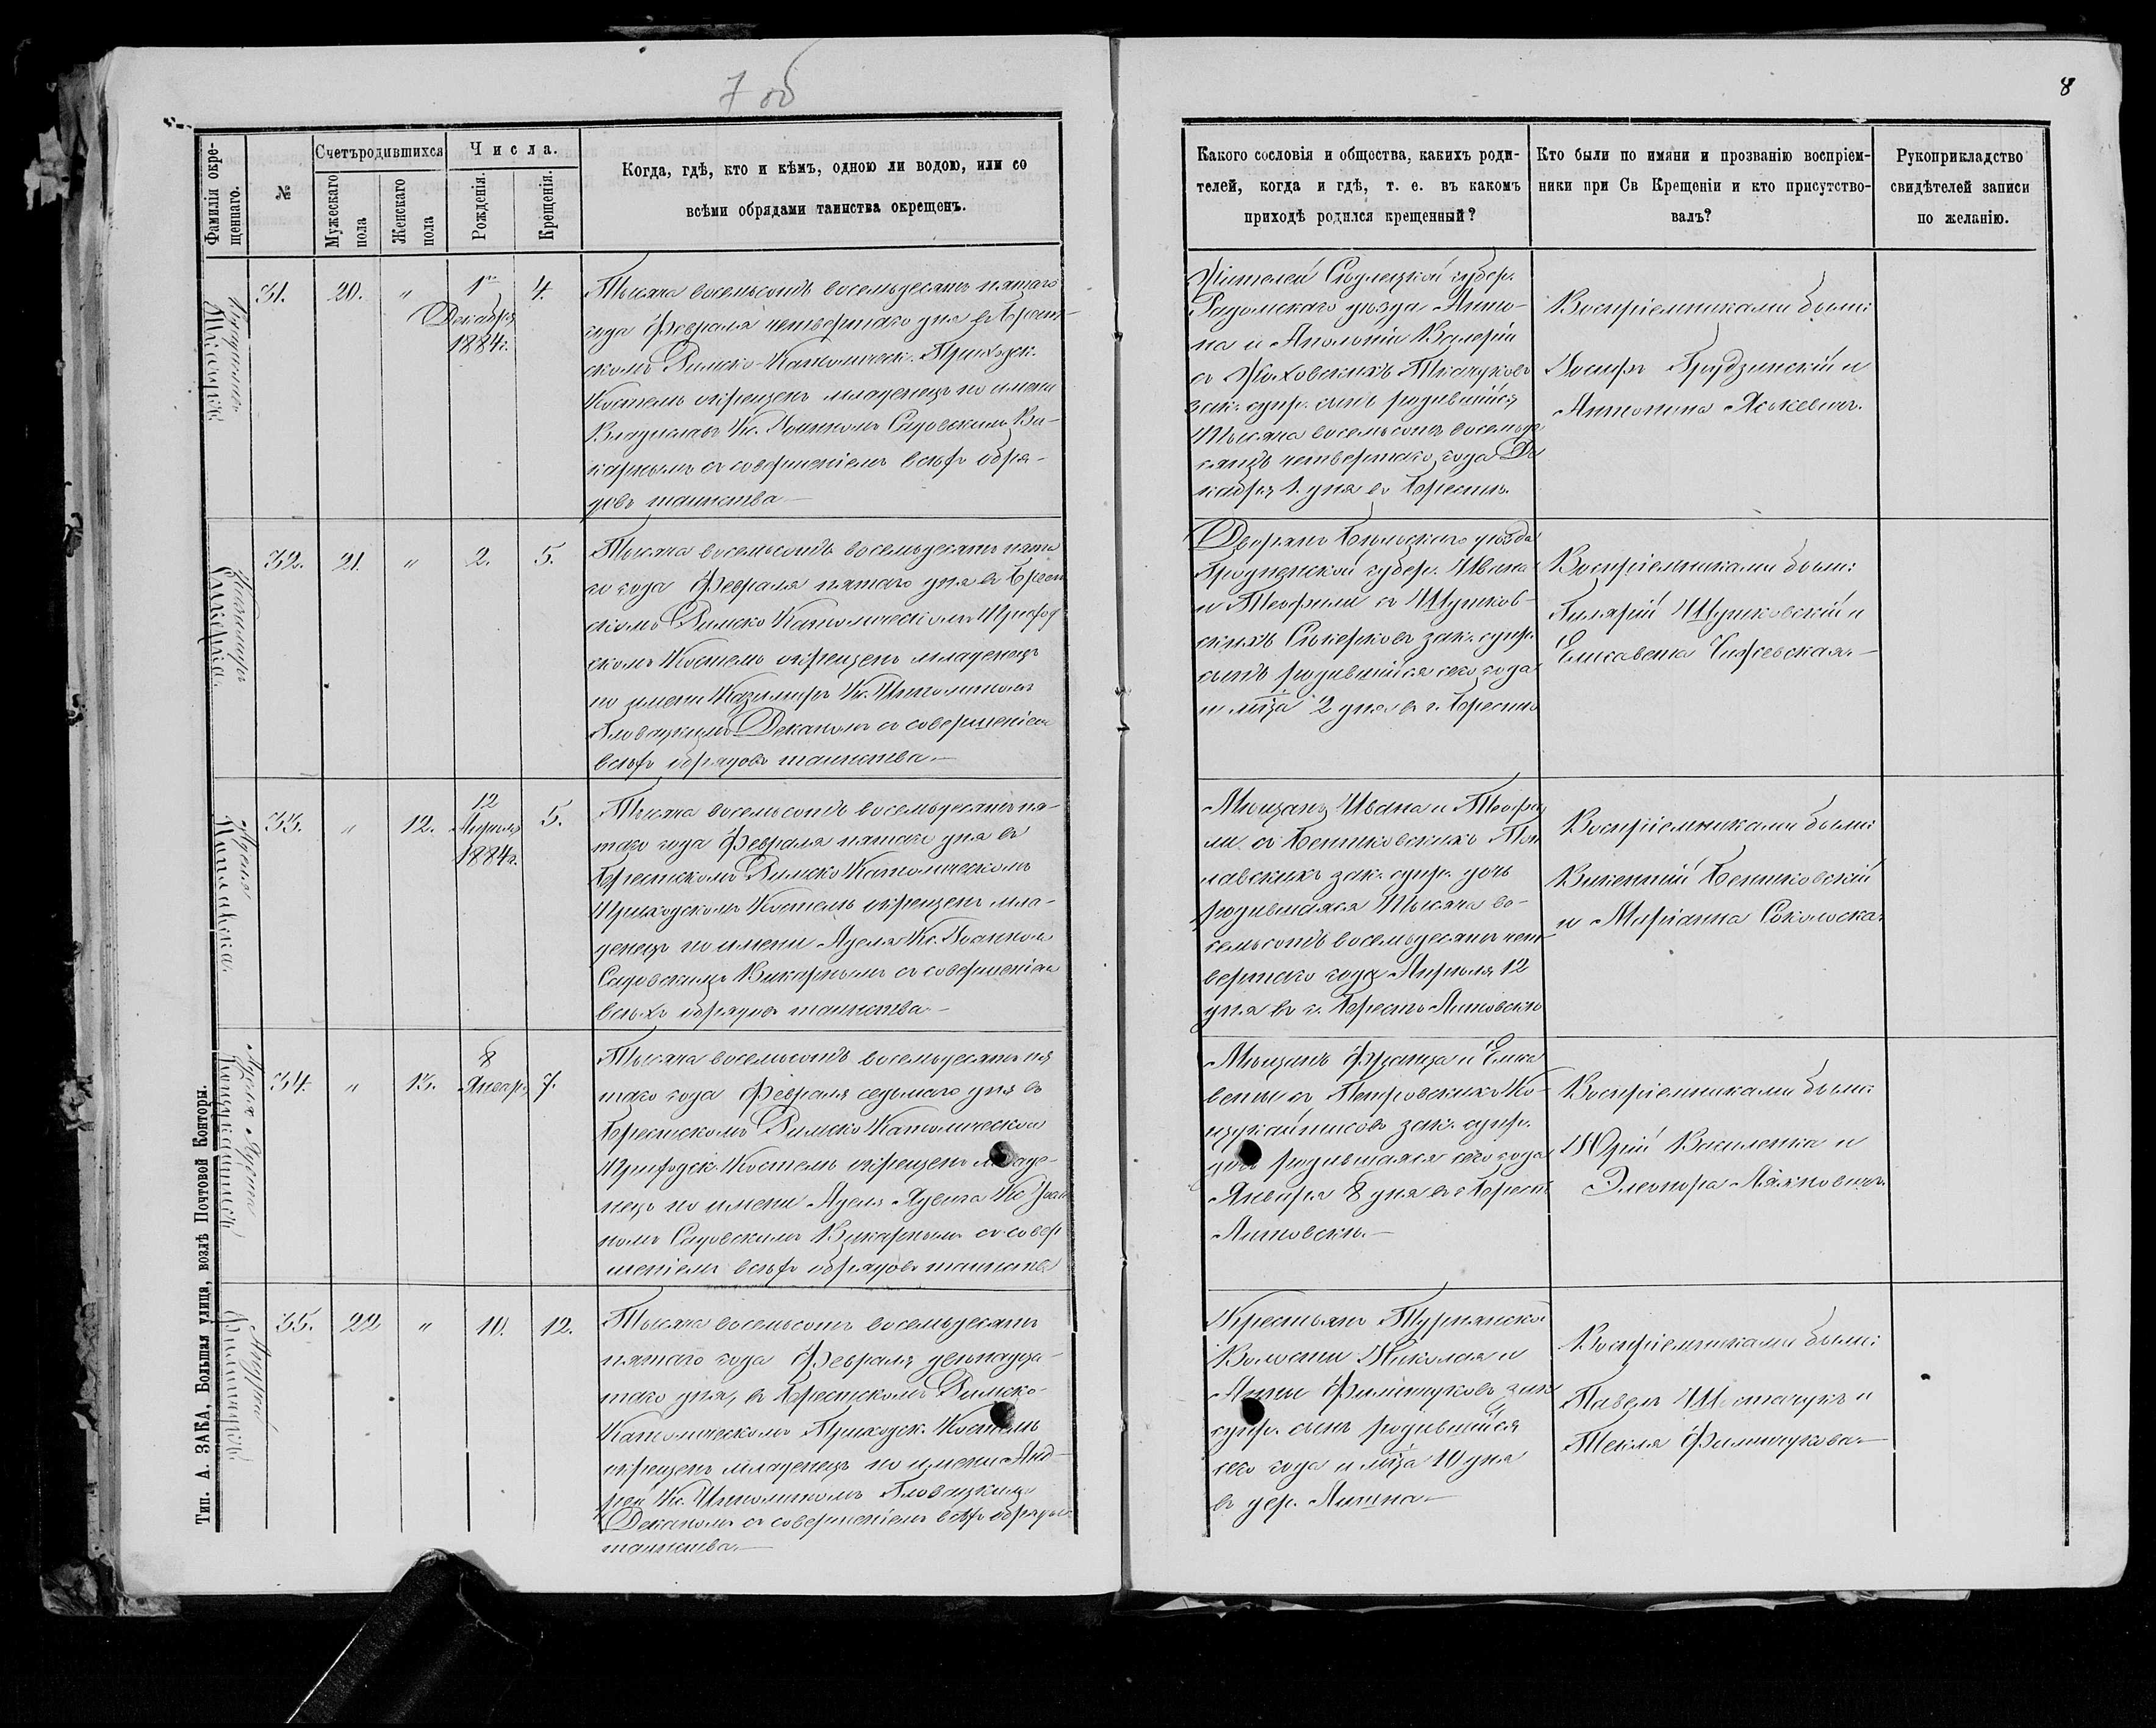 7 об
8
Фамилія окре-
щеннаго.
№
Счетъ родившихся
Мужескаго
пола
Женскаго
пола
Числа.
Рожденія.
Крещенія.
Когда, гдѣ, кто и кѣмъ, одною ли водою, или со
всѣми обрядами таинства окрещенъ.
Какого сословія и общества, какихъ роди-
телей, когда и гдѣ, т. е. въ какомъ
приходѣ родился крещенный?
Кто были по имяни и прозванію воспріем-
ники при Св Крещеніи и кто присутство-
валъ?
Рукоприкладство
свидѣтелей записи
по желанію.
Владиславъ
31.
20.
"
1го
Декабря
1884г.
4.
Тысяча восемьсотъ восемьдесятъ пятаго
года Февраля четвертаго дня въ Брест-
скомъ Римско-Католическ. Приходск.
Костелѣ окрещенъ младенецъ по имени
Владиславъ Кс. Іоанномъ Садовскимъ Ви-
карнымъ съ совершеніемъ всѣхъ обря-
довъ таинства
Жителей Сѣдлецкой губер.
Радомскаго уѣзда Анто-
на и Аполоніи Валеріи
съ
зак. супр. сынъ родившійся
Тысяча восемьсотъ восемьде
сятъ четвертаго года Де
кабря 1 дня въ Брестѣ.
Воспріемниками были:
Іосифъ Грудзинскій и
Антонина Яськевичъ.
Казимиръ
32.
21.
"
2.
5.
Тысяча восемьсотъ восемьдесятъ пята
го года Февраля пятаго дня въ Брест
скомъ Римско Католическомъ Приход
скомъ Костелѣ окрещенъ младенецъ
по имени Казимиръ Кс. Ипполитомъ
Гловацкимъ Деканомъ съ совершеніемъ
всѣхъ обрядовъ таинства.
Дворянъ Бѣльскаго уѣзда
Гродненской губер. Ивана
и Теофили съ Шутков-
скихъ зак. супр.
сынъ родившійся сего года
и мца 2 дня въ г. Брестѣ
Воспріемниками были:
Гилярій Шутковскій и
Елисавета Чижевская.
Аделя
33.
"
12.
12
Апрѣля
1884г.
5.
Тысяча восемьсотъ восемьдесятъ пя-
таго года Февраля пятаго дня въ
Брестскомъ Римско Католическомъ
Приходскомъ Костелѣ окрещенъ мла-
денецъ по имени Аделя Кс. Іоанномъ
Садовскимъ Викарнымъ съ совершеніемъ
всѣхъ обрядовъ таинства
Мѣщанъ Ивана и Теофи
ли съ Бентковскихъ
лавскихъ зак. супр. дочь
родившаяся Тысяча во-
семьсотъ восемьдесятъ чет
вертаго года Апрѣля 12
дня въ г. Брестъ Литовскѣ
Воспріемниками были:
Викентій Бентковскій
и Маріанна Соколоска
Аделя Ядвига
34.
"
13.
8
Январ.
7.
Тысяча восемьсотъ восемьдесятъ пя
таго года Февраля седьмаго дня въ
Брестскомъ Римско Католическом
Приходск. Костелѣ окрещенъ младе-
нецъ по имени Аделя Ядвига Кс. Іоан
номъ Садовскимъ Викарнымъ съ совер
шеніемъ всѣхъ обрядовъ таинства
Мѣщанъ Франца и Елиса
веты съ Петровскихъ Ко-
зак. супр.
дочь родившаяся сего года
Января 8 дня въ г. Брестѣ
Литовскѣ.
Воспріемниками были:
Юрій Василевка и
Элеонора
Андрей
35.
22
"
10.
12.
Тысяча восемьсотъ восемьдесятъ
пятаго года Февраля двенадца-
таго дня, въ Брестскомъ Римско-
Католическомъ Приходск. Костелѣ
окрещенъ младенецъ по имени Анд-
рей Кс. Ипполитомъ Гловацкимъ
Деканомъ съ совершеніемъ всѣхъ обрядовъ
таинства.
Крестьянъ Турнянской
Волости Николая и
Анны Филипчуковъ зак
супр. сынъ родившійся
сего года и мца 10 дня
въ дер. Лишна
Воспріемниками были:
Павелъ Шостачукъ и
Текля Филипчукова
Тип. А. ЗАКА, Большая улица, возлѣ Почтовой Конторы.